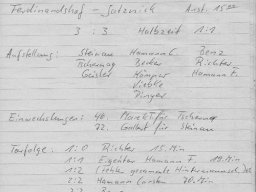 Ferdinandshof - Jatznick Anst. 15⁰⁰
3 : 3 Halbzeit 1:1
Aufstellung: Steinau Hamann C. Benz
Tschernag Becker Richter
Geisler Kämper Hamann F.
Vietzke
Dinger
Einwechselungen: 46. für Tschernag
72. für Steinau
Torfolge: 1:0 Richter 15. Min
1:1 Eigentor Hamann F. 19. Min
1:2 gesamte Hintermannschaft
2:2 Hamann Carsten 70. Min